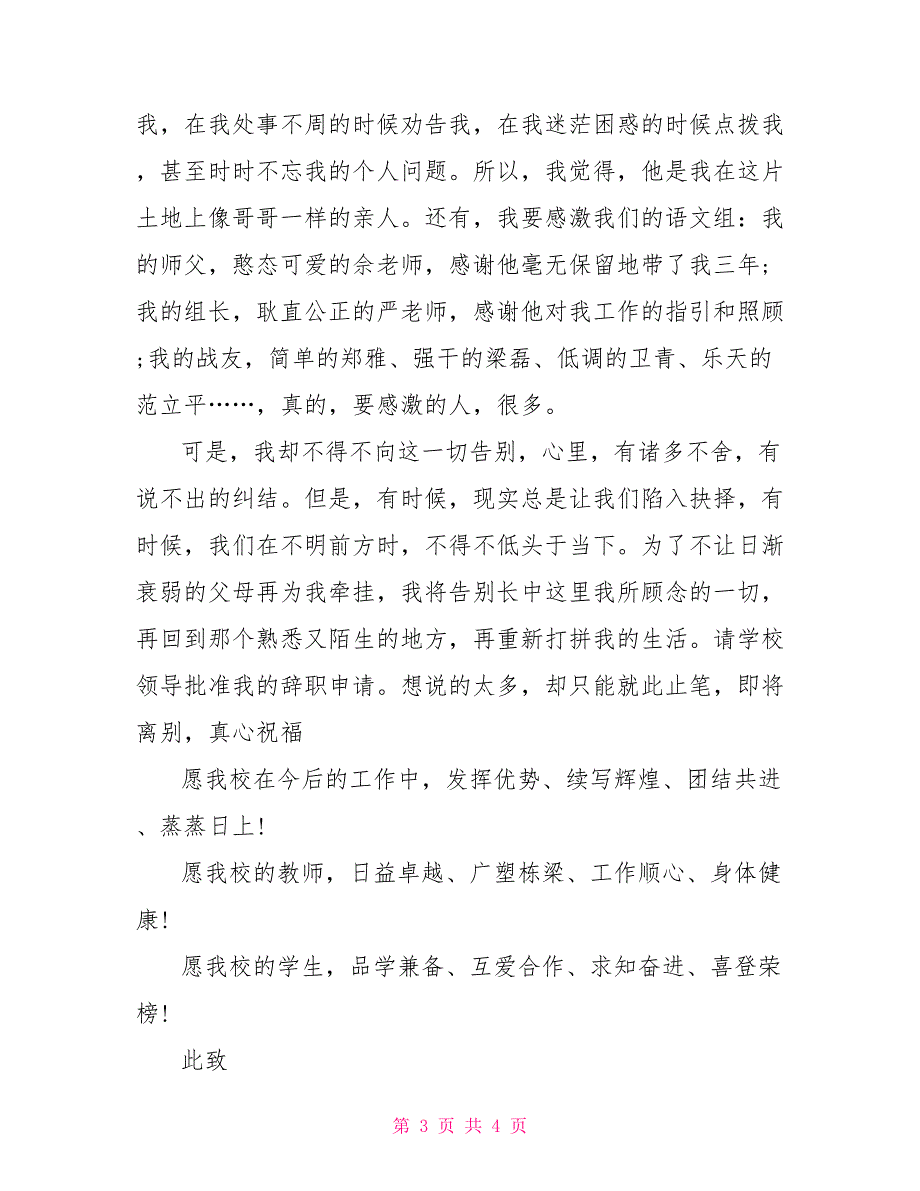 我，在我处事不周的时候劝告我，在我迷茫困惑的时候点拨我
，甚至时时不忘我的个人问题。所以，我觉得，他是我在这片
土地上像哥哥一样的亲人。还有，我要感激我们的语文组：我
的师父，憨态可爱的佘老师，感谢他毫无保留地带了我三年;
我的组长，耿直公正的严老师，感谢他对我工作的指引和照顾
;我的战友，简单的郑雅、强干的梁磊、低调的卫青、乐天的
范立平……，真的，要感激的人，很多。
可是，我却不得不向这一切告别，心里，有诸多不舍，有
说不出的纠结。但是，有时候，现实总是让我们陷入抉择，有
时候，我们在不明前方时，不得不低头于当下。为了不让日渐
衰弱的父母再为我牵挂，我将告别长中这里我所顾念的一切，
再回到那个熟悉又陌生的地方，再重新打拼我的生活。请学校
领导批准我的辞职申请。想说的太多，却只能就此止笔，即将
离别，真心祝福
愿我校在今后的工作中，发挥优势、续写辉煌、团结共进
、蒸蒸日上!
愿我校的教师，日益卓越、广塑栋梁、工作顺心、身体健
康!
愿我校的学生，品学兼备、互爱合作、求知奋进、喜登荣
榜!
此致
第 3 页 共 4 页